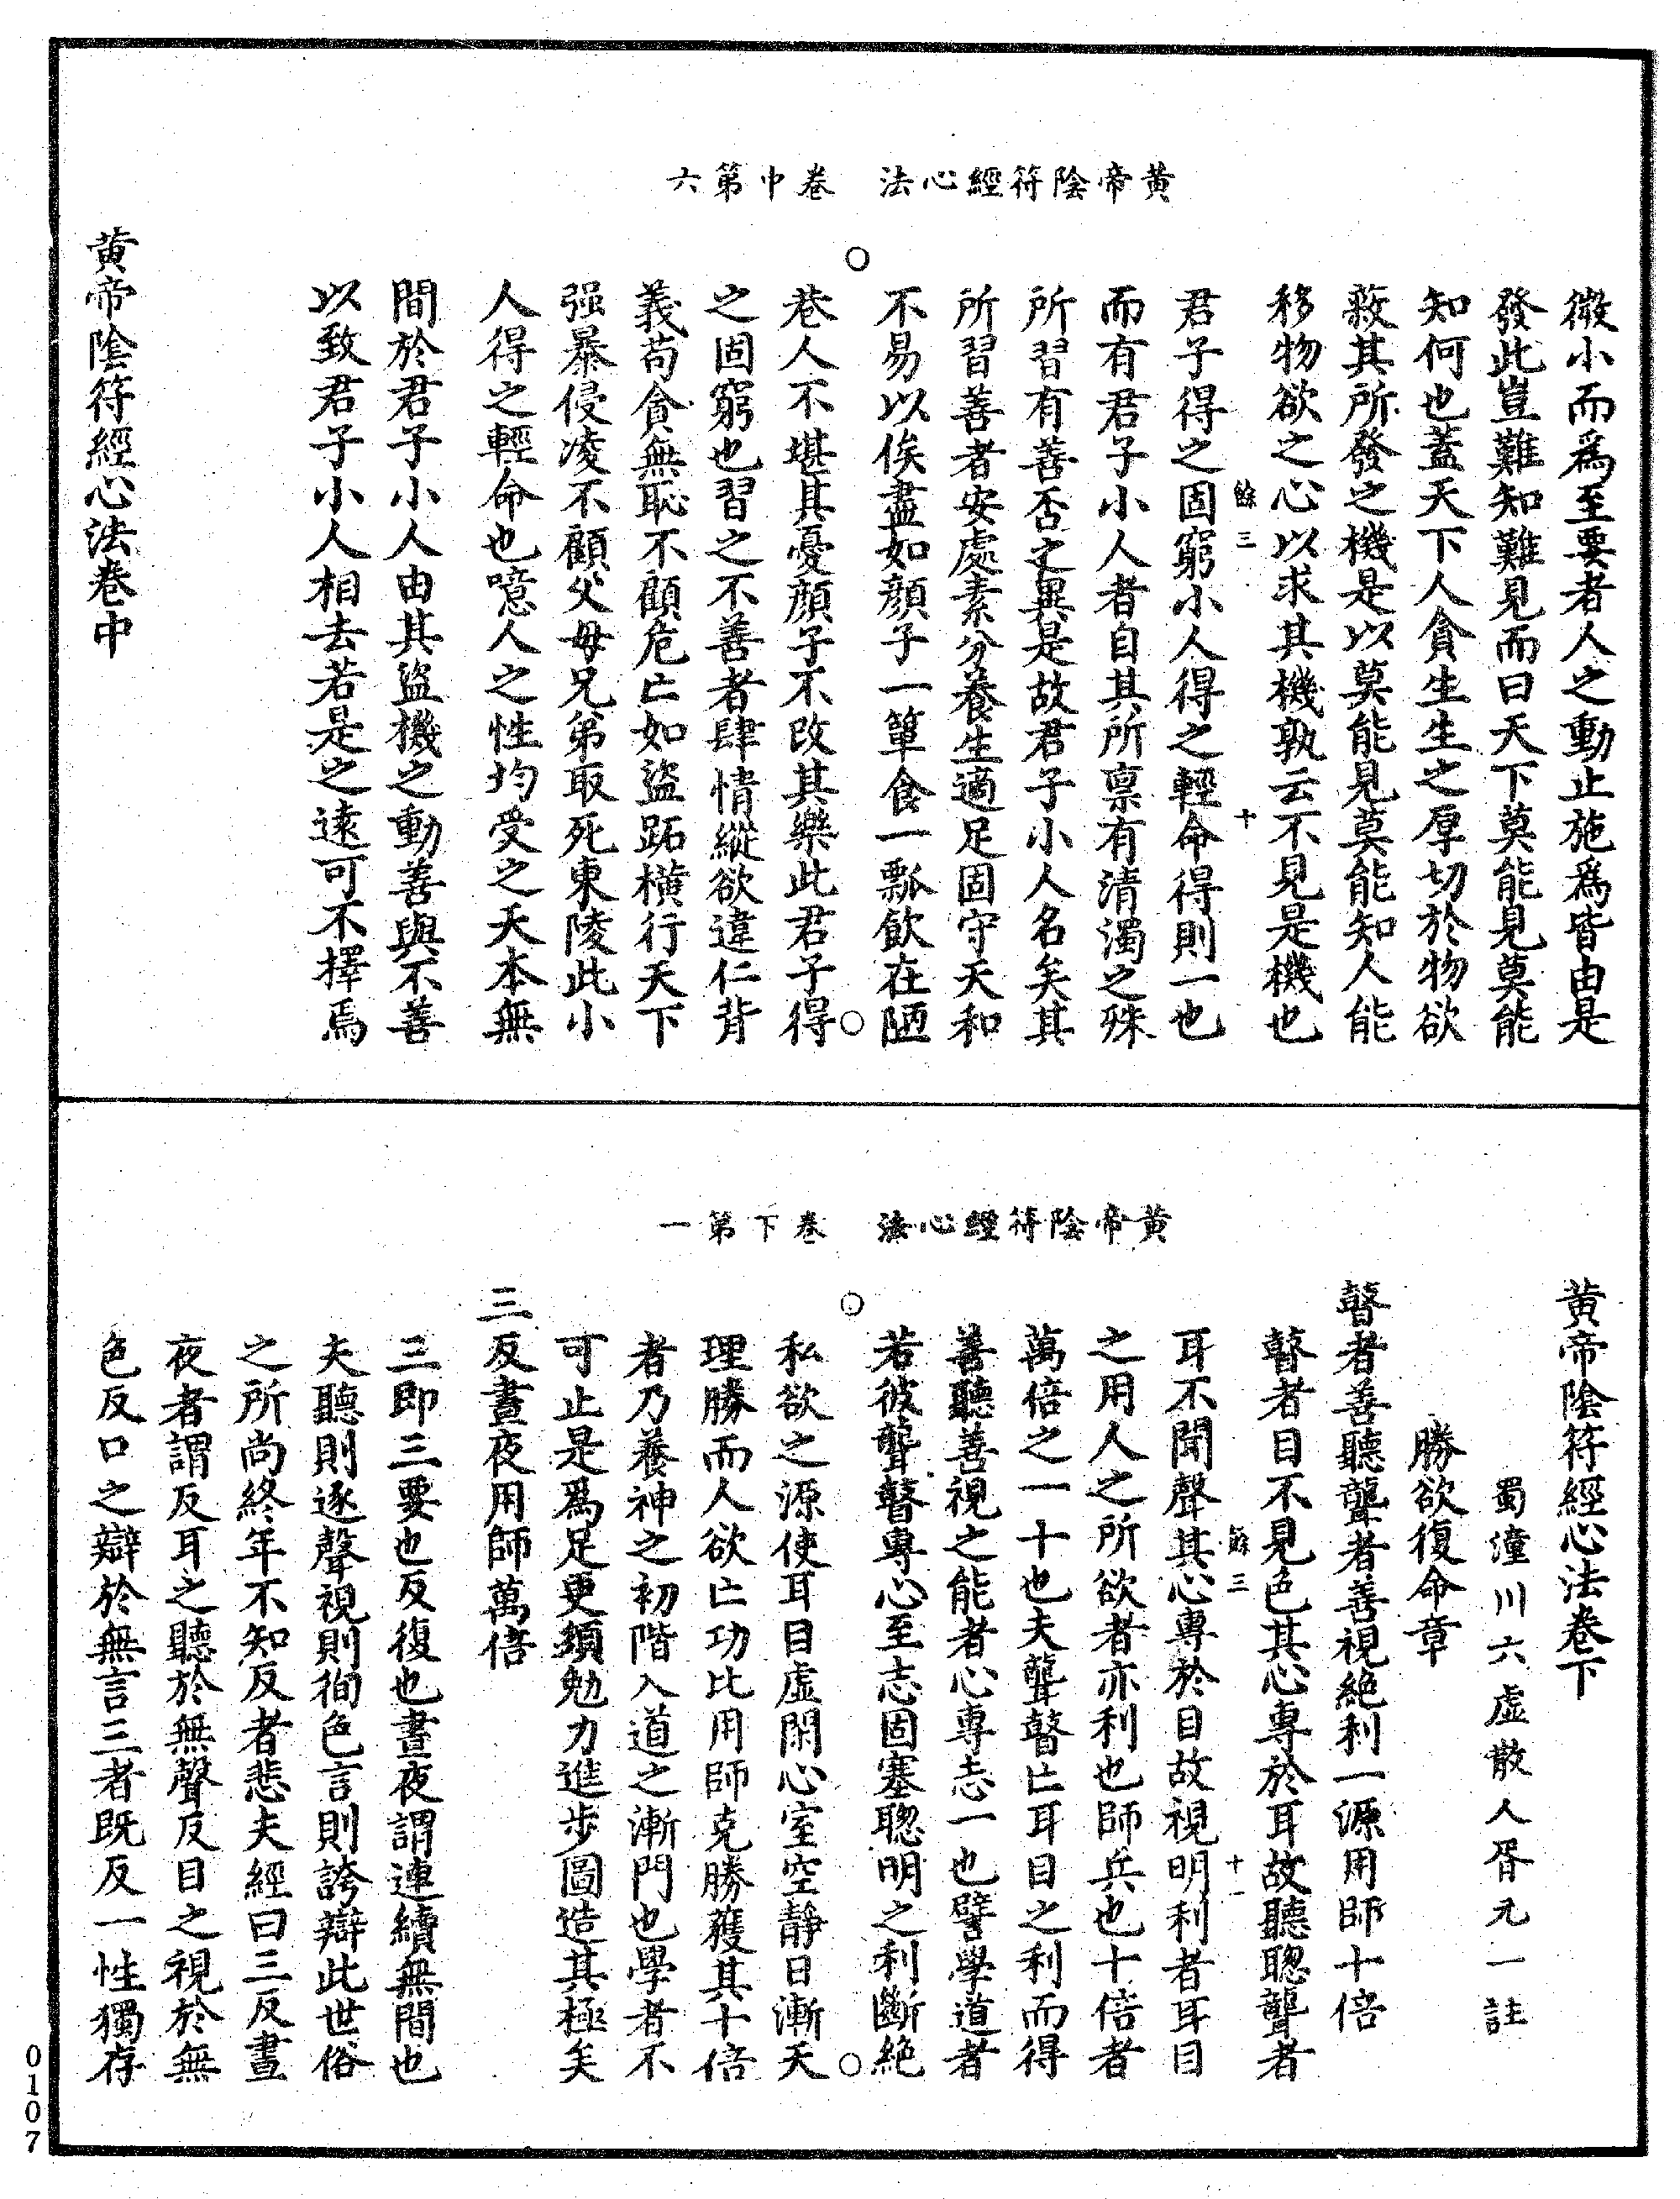 黃帝陰符經心法　卷中第六
微小而爲至要者人之動止施爲皆由是
發此豈難知難見而曰天下莫能見莫能
知何也蓋天下人貪生生之厚切於物欲
蔽其所發之機是以莫能見莫能知人能
移物欲之心以求其機孰云不見是機也
餘三　十
君子得之固窮小人得之輕命得則一也
而有君子小人者自其所禀有清濁之殊
所習有善否之異是故君子小人名矣其
所習善者安處素分養生適足固守天和
不易以俟盡如顔子一簞食一瓢飲在陋
巷人不堪其憂顔子不改其樂此君子得
之固窮也習之不善者肆情縱欲違仁背
義苟貪無恥不顧危亡如盜跖橫行天下
强暴侵凌不顧父母兄弟取死東陵此小
人得之輕命也噫人之性均受之天本無
間於君子小人由其盜機之動善與不善
以致君子小人相去若是之遠可不擇焉
黃帝陰符經心法卷中
黃帝陰符經心法　卷下第一
黃帝陰符經心法卷下
蜀潼川六虛散人胥元一註
勝欲復命章
瞽者善聽聾者善視絶利一源用師十倍
瞽者目不見色其心專於耳故聽聰聾者
餘三　十一
耳不聞聲其心專於目故視明利者耳目
之用人之所欲者亦利也師兵也十倍者
萬倍之一十也夫聾瞽亡耳目之利而得
善聽善視之能者心專志一也譬學道者
若彼聾瞽專心至志固塞聰明之利斷絶
私欲之源使耳目虛閑心室空靜日漸天
理勝而人欲亡功比用師克勝獲其十倍
者乃養神之初階入道之漸門也學者不
可止是爲足更須勉力進步圖造其極矣
三反晝夜用師萬倍
三即三要也反復也晝夜謂連續無間也
夫聽則逐聲視則徇色言則誇辯此世俗
之所尚終年不知反者悲夫經曰三反晝
夜者謂反耳之聽於無聲反目之視於無
色反口之辯於無言三者既反一性獨存
0107